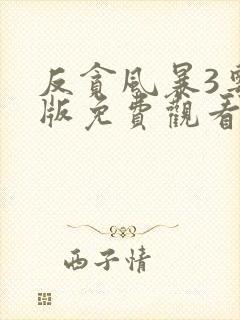 反貪風暴3粵
版免費觀看
西子情